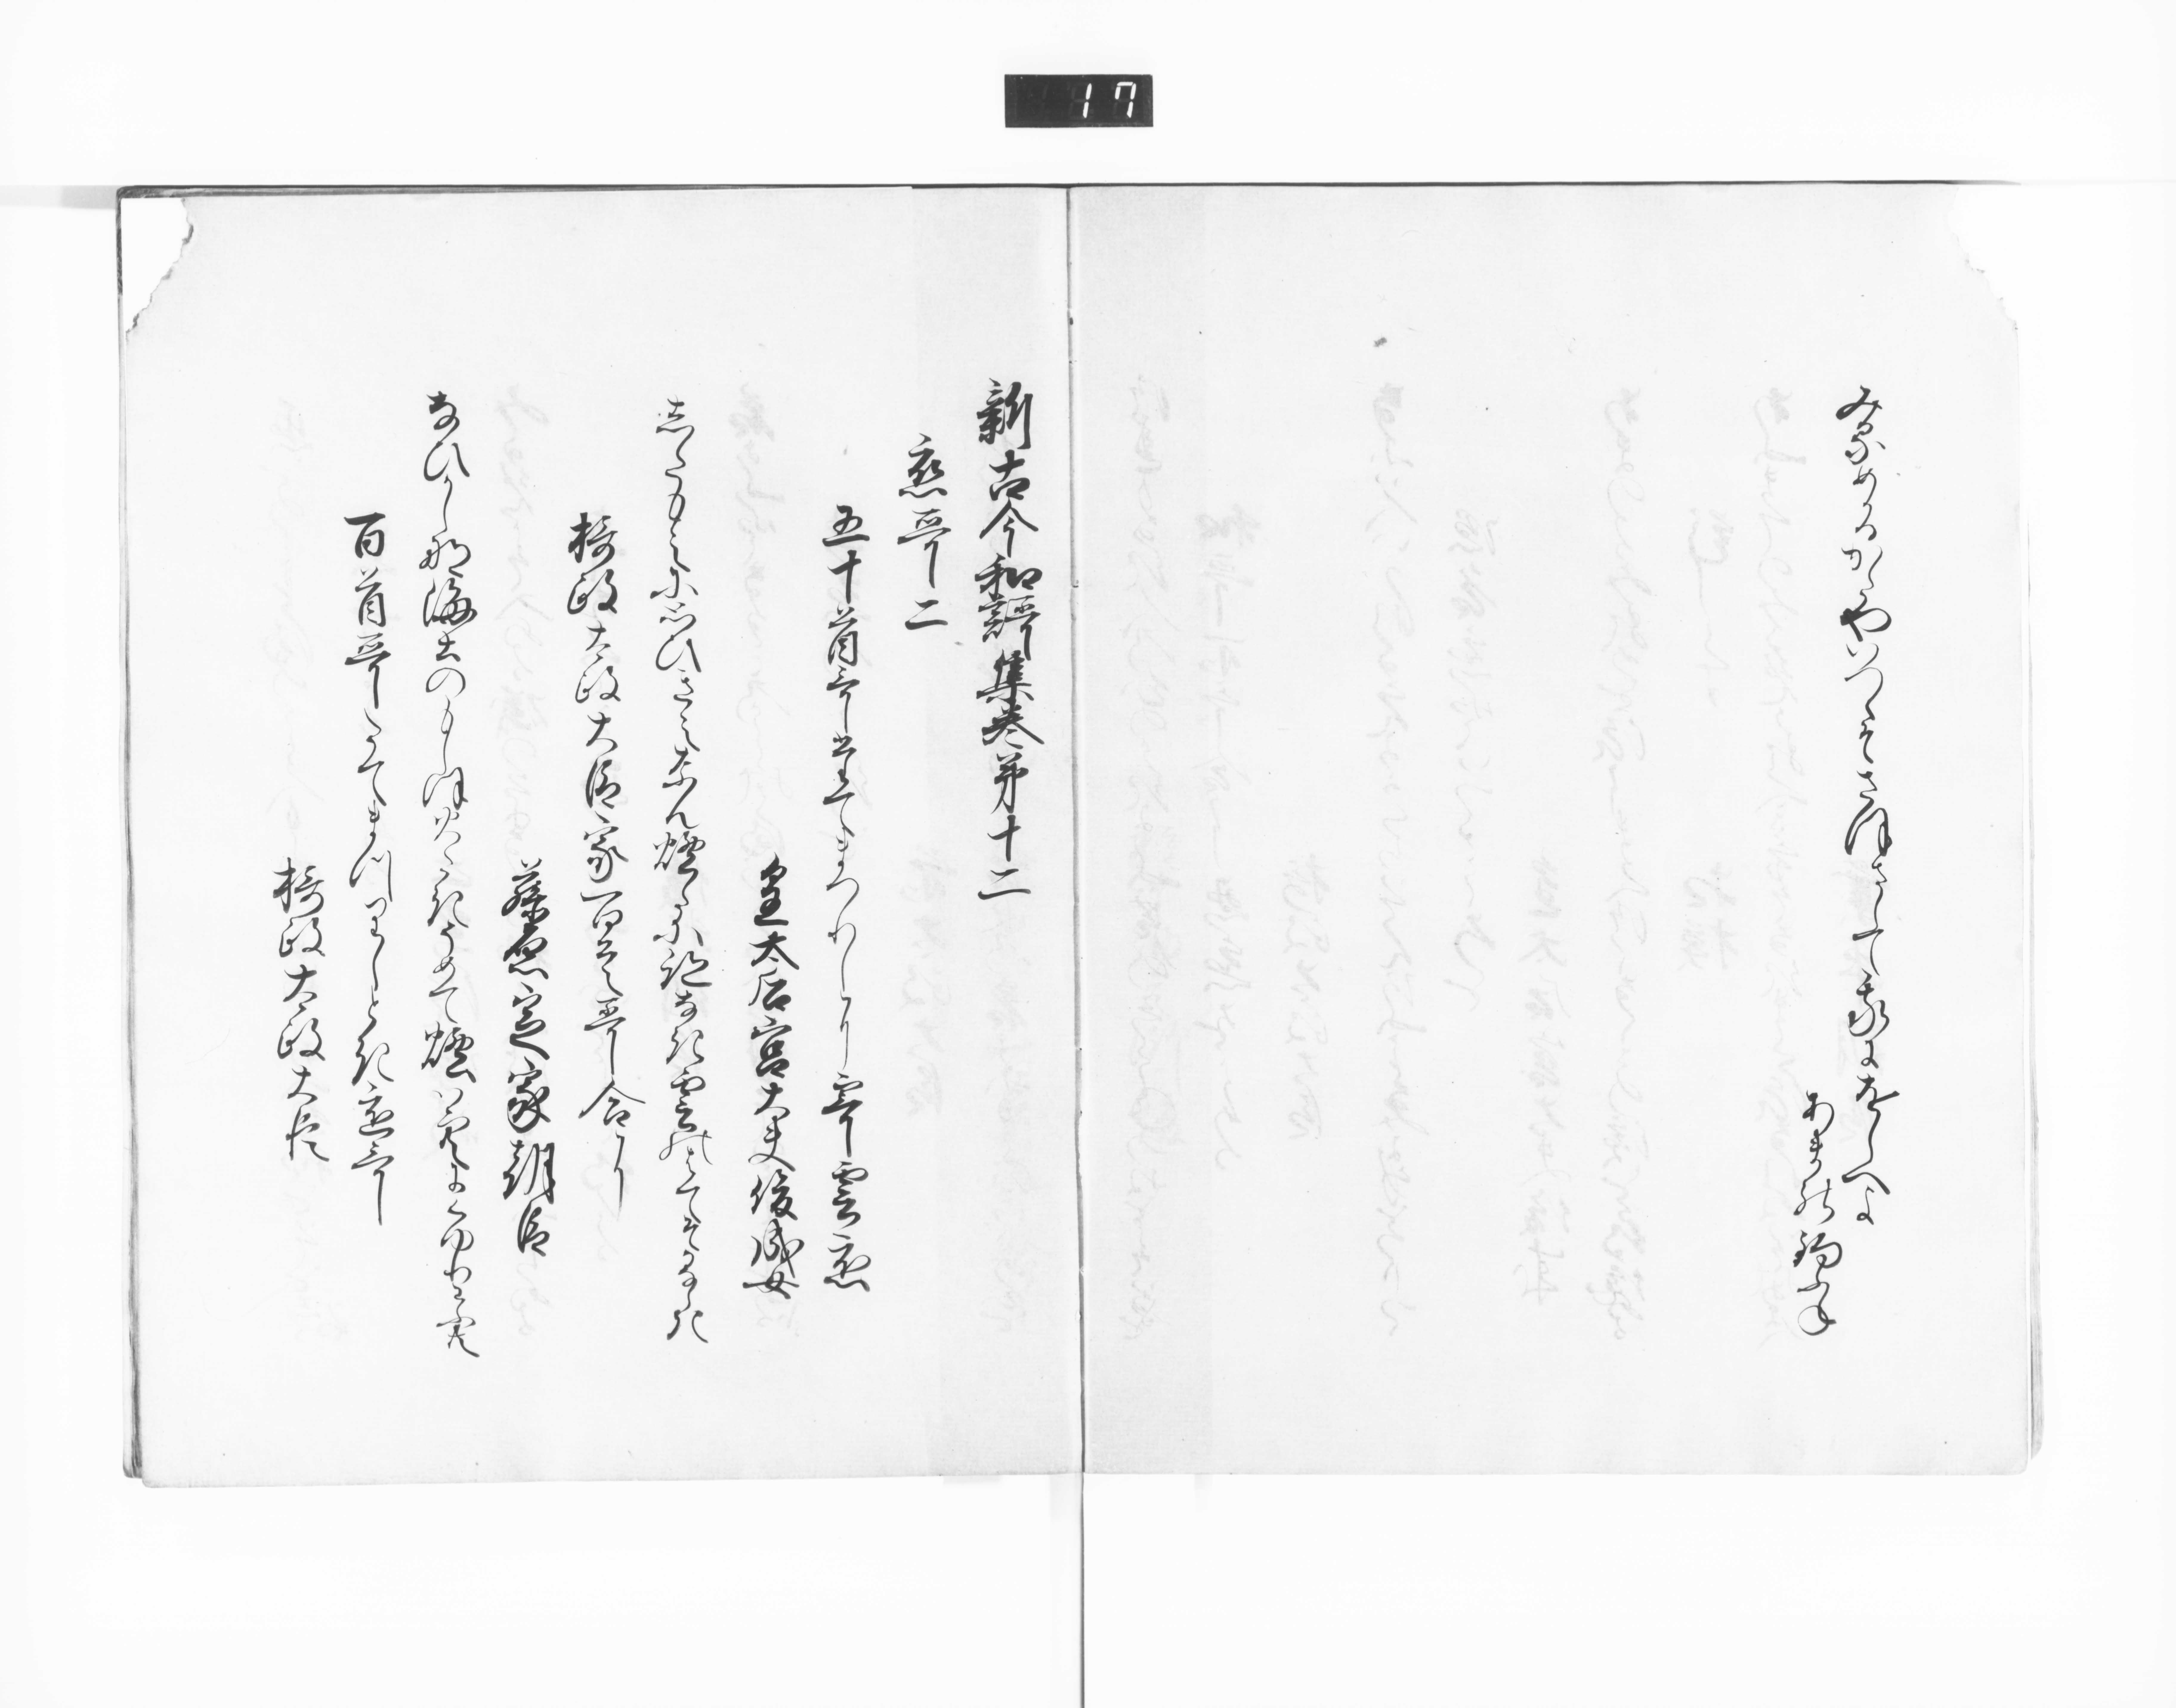 17
みるめかるかたやいつくそさほさして我にをしへよ
あまの釣舟
新古今和謌集巻第十二
恋哥二
五十首哥たてまつりしに寄雲恋
皇太后宮大夫俊成女
したもえに思ひきえなん煙たに跡なき雲のはてそかなしき
摂政太政大臣家百首哥合に
藤原定家朝臣
なひかしな海士のもしほ火たきそめて煙は空にくゆりわふとも
百首哥たてまつりしとき恋哥
摂政太政大臣